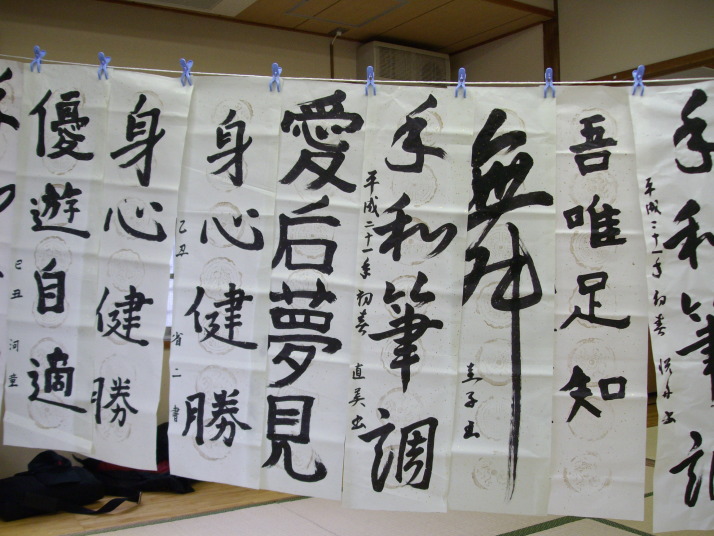 手和筆調
平成二十一年 初春
吾唯足知
舞
手和筆調
平成二十一年 初春 直美書
愛后夢見
身心健勝
己丑 省二書
身心健勝
優遊自適
己丑 河童